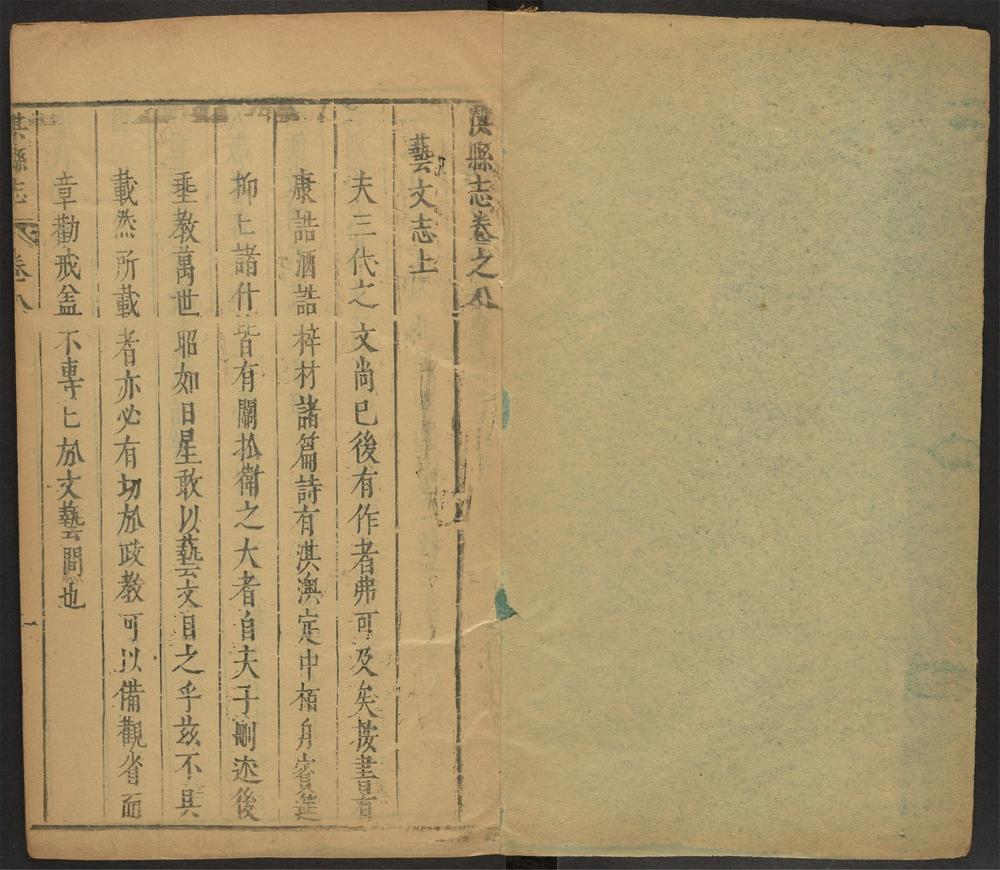 淇縣志卷之八
藝文志上
夫三代之文尚已後有作者弗可及矣按書有
康誥酒誥梓材諸篇詩有淇澳定中栢舟賓筵
抑七諸什皆有關於衛之大者自夫子刪述後
垂教萬世昭如日星敢以藝文目之乎兹不具
載然所載者亦必有切於政教可以備觀省而
章勸戒盆不専七於文藝間也
淇縣志 卷八 一